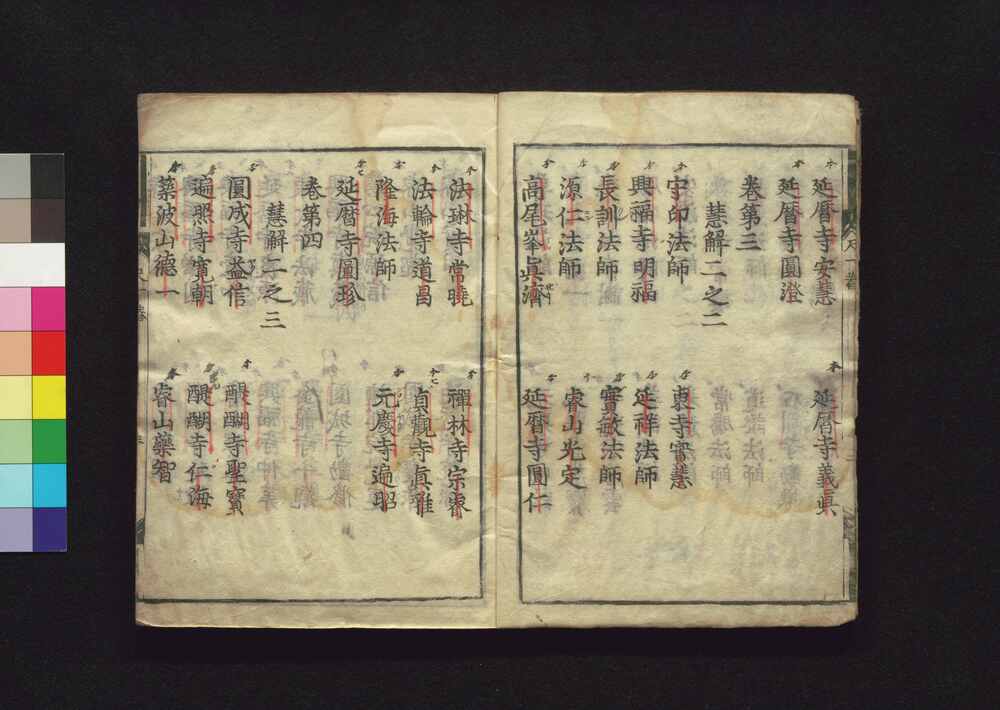 延曆寺安慧　延曆寺義眞
延曆寺圓澄
卷第三
慧解二之二
守印法師　東寺實慧
興福寺明福　延祥法師
長訓法師　實敏法師
源仁法師　睿山光定
高尾峯眞濟　延曆寺圓仁
法琳寺常曉　禪林寺宗睿
法輪寺道昌　貞觀寺眞雅
隆海法師　元慶寺遍昭
延曆寺圓珍
卷第四
慧解二之三
圓成寺益信　醍醐寺聖寶
遍照寺寬朝　醍醐寺仁海
築波山德一　睿山藥智